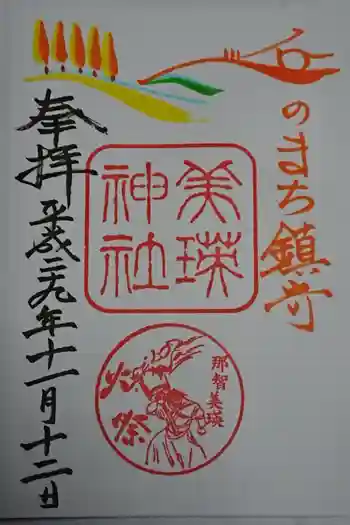 丘のまち鎮守
美瑛
神社
那智美瑛
火祭
奉拝 平成二九年十一月十二日